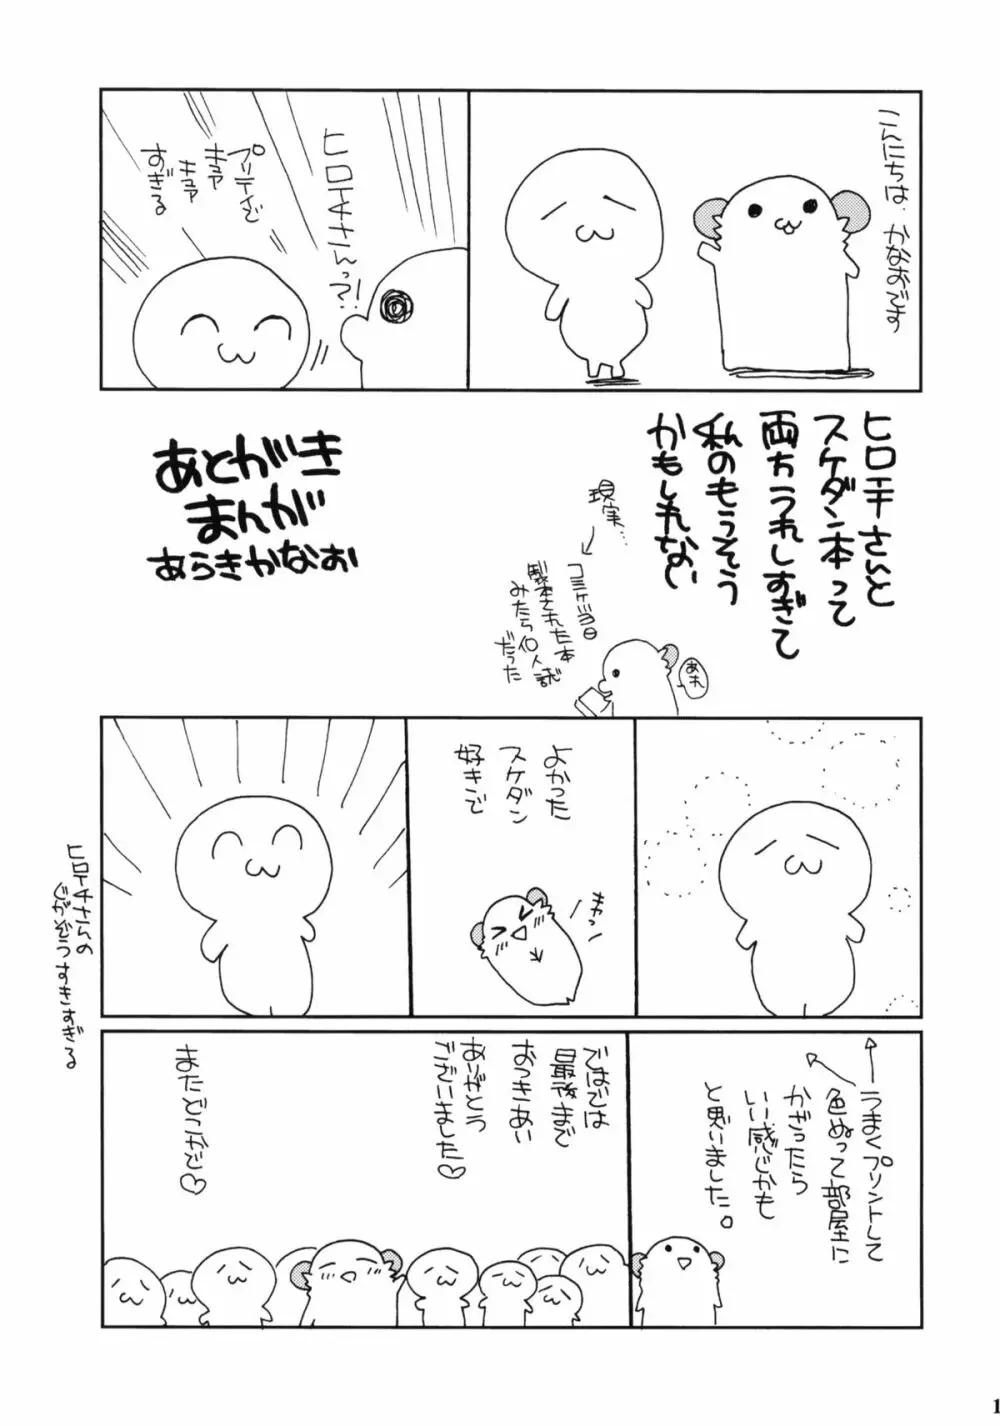 こんにちは、かなおです
ヒロキチさんっ?!
プリティで
キュア
キュア
すぎる
ヒロキチさんと
スケダン本って
両方うれしすぎて
私のもうそう
かもしれない
現実…
コミケ当日
製本された本
みたら個人誌
だった
あれ
あとがき
まんが
あらきかなお
よかった
スケダン
好きで
キャっ
ヒロキチさんの
じがぞうすきすぎる
うまくプリントして
色ぬって部屋に
かざったら
いい感じかも
と思いました。
ではでは
最後まで
おつきあい
ありがとう
ございました♡
またどこかで♡
1